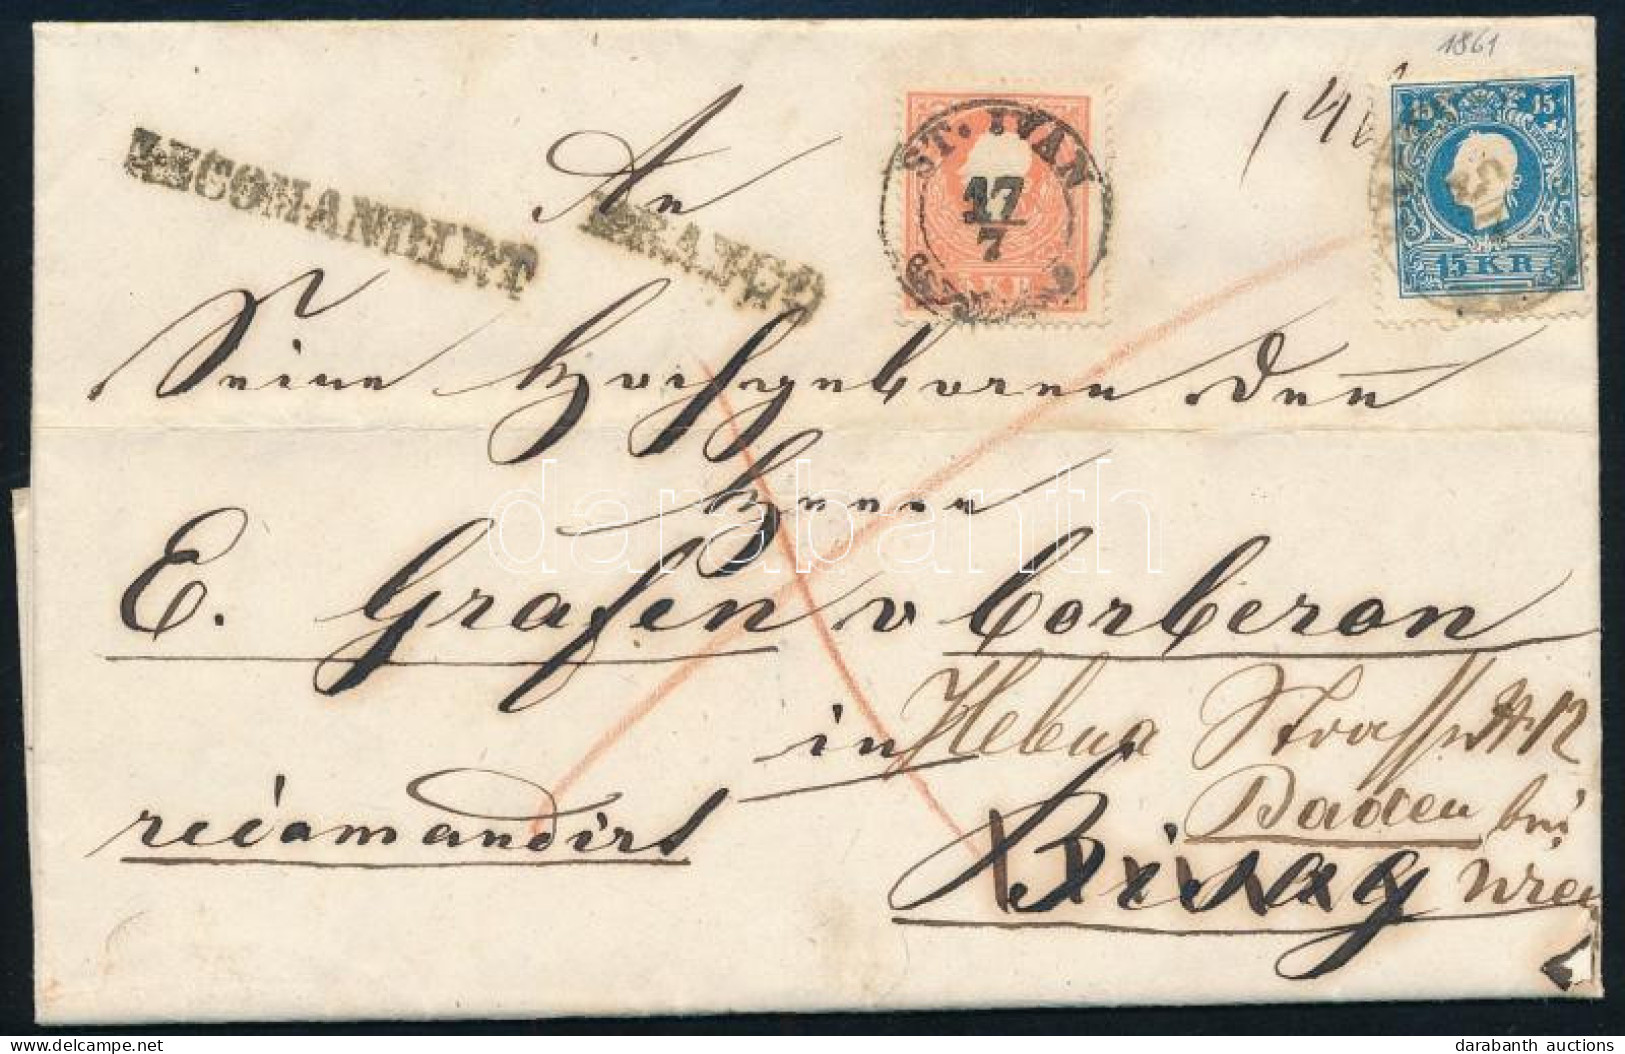 1861
RECOMANDIRT
FRANCO
An
ST. IVAN
17
7
15 15
15 KR
Seine Hochgeboren den
Herrn
E. Grafen v Corberon
in Helena Strasse № 12
Baden bei
recomandirt
Bisag Wien
darabanth
darabanth auctions